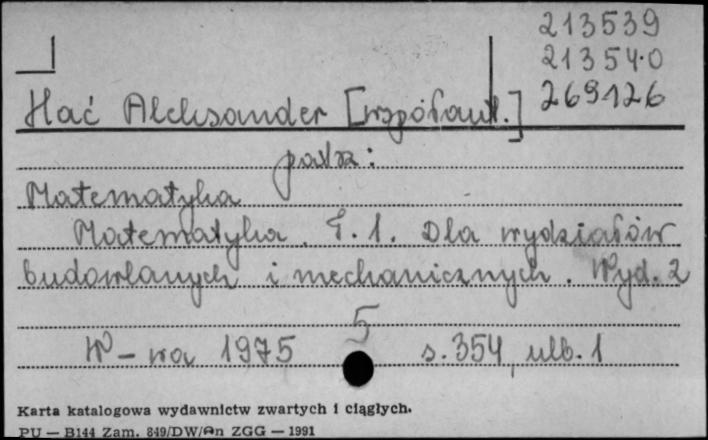 213539
213540
269126
Hać Aleksander [współaut.]
patrz:
Matematyka
Matematyka. T. 1. Dla wydziałów
budowlanych i mechanicznych. Wyd. 2
5
W-wa 1975 s. 354, ulb. 1
Karta katalogowa wydawnictw zwartych i ciągłych.
PU — B144 Zam. 849/DW/An ZGG — 1991